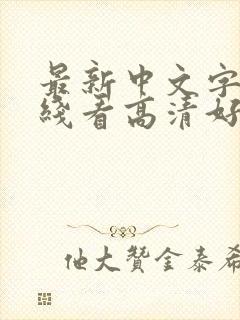 最新中文字
线看高清好
他大赞金泰希